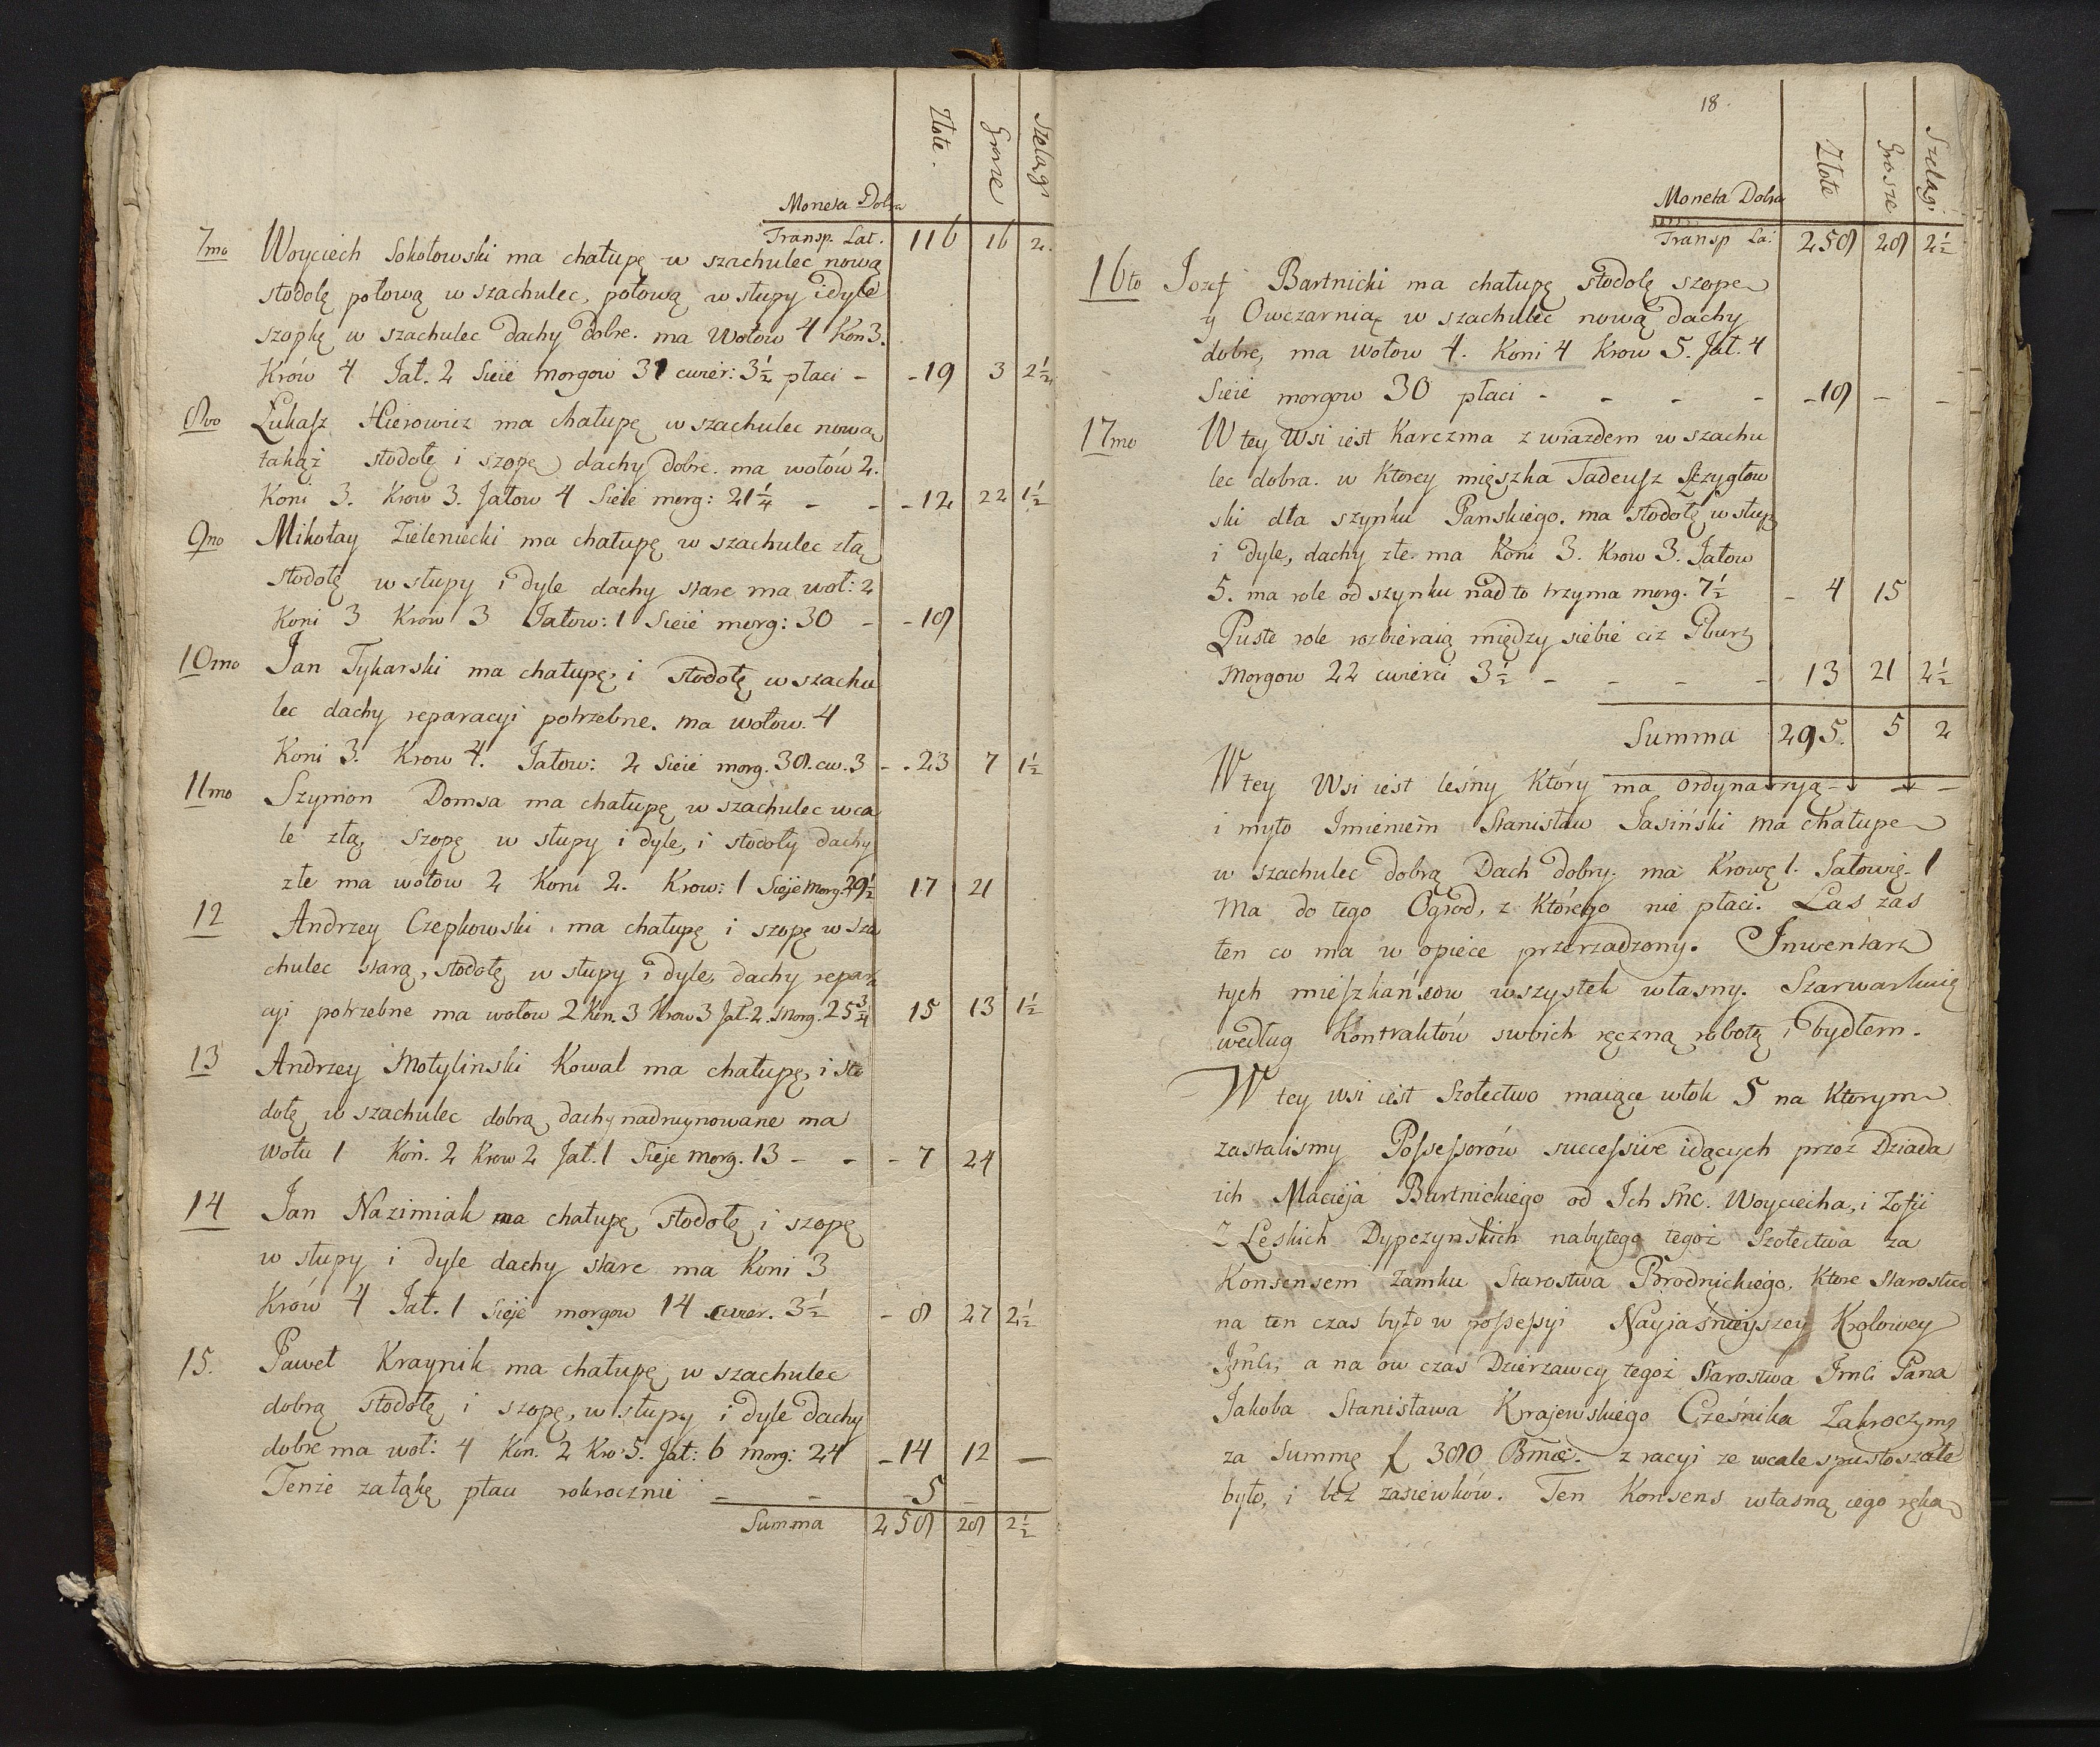 Złote.
Grosze
Szelągi
Moneta Dobra
Transp. Lat. 116 16 2.
7mo Woyciech Sokołowski ma chałupę w szachulec nową
stodołę połową w szachulec, połową w słupy i dyle
szopkę w szachulec dachy dobre. ma Wołow 4 Kon 3.
Krów 4 Jał. 2 Sieie morgow 31 cwier: 3½ płaci - - 19 3 2½
8vo Łukasz Hierowicz ma chałupę w szachulec nową
takąż stodołę i szopę dachy dobre. ma wołów 2.
Koni 3. Krow 3. Jałow 4 Sieie morg: 21¼ - - - 12 22 1½
9no Mikołay Zieleniecki ma chałupę w szachulec złą
stodołę w słupy i dyle dachy stare ma woł: 2
Koni 3 Krow 3 Jałow: 1 Sieie morg: 30 - - 18
10mo Jan Tykarski ma chałupę, i stodołę w szachu
lec dachy reparacyi potrzebne. ma wołow. 4
Koni 3. Krow 4. Jałow: 2 Sieie morg. 38. cw. 3 - - 23 7 1½
11mo Szymon Domsa ma chałupę w szachulec wca
le złą, szopę w słupy i dyle, i stodoły dachy
złe ma wołow 2 Koni 2. Krow: 1 Sieje morg. 29½ 17 21
12 Andrzey Czepkowski ma chałupę i szopę w sza
chulec starą, stodołę w słupy i dyle, dachy repara
cyi potrzebne ma wołow 2 Kon. 3 Krow 3 Jał. 2. Morg. 25¾ 15 13 1½
13 Andrzey Motylinski Kowal ma chałupę, i sto
dołę w szachulec dobrą, dachy nadruynowane ma
wołu 1 Koń. 2 Krow 2 Jał. 1 Sieje morg. 13 - - - 7 24
14 Jan Nazimiak ma chałupę, stodołę i szopę
w słupy i dyle dachy stare ma Koni 3
Krów 4 Jał. 1 Sieje morgow 14 cwier. 3½ - 8 27 2½
15. Paweł Kraynik ma chałupę w szachulec
dobrą stodołę i szopę, w słupy i dyle dachy
dobre ma woł: 4 Kon. 2 Kro: 5. Jał: 6 morg: 24 - 14 12 —
Tenże za łąkę płaci rokrocznie - - - 5 -
Summa 258 28 2½
18.
Złote
Grosze
Szelągi
Moneta Dobra
Transp La: 258 28 2½
16to Jozef Bartnicki ma chałupę stodołę szope
y Owczarnią w szachulec nową dachy
dobre, ma wołow 4. Koni 4 Krow 5. Jał. 4
Sieie morgow 30 płaci - - - - - 18 - -
17mo W tey Wsi iest Karczma z wiazdem w szachu
lec dobra. w ktorey mięszka Tadeusz Szczygłow
ski dla szynku Panskiego. ma stodołę w słupy
i dyle, dachy złe ma Koni 3. Krow 3. Jałow
5. ma role od szynku nad to trzyma morg. 7½ - 4 15
Puste role rozbieraią między siebie ciż Gburz
Morgow 22 cwierci 3½ - - - - 13 21 2½
Summa 295. 5 2
W tey Wsi iest leśny Który ma ordynaryą - - -
i myto Imieniem Stanisław Jasiński ma chałupe
w szachulec dobrą Dach dobry. ma Krowę 1. Jałowię. 1
Ma do tego Ogrod, z Którego nie płaci. Las zaś
ten co ma w opiece przerzadzony. Inwentarz
tych mieszkańcow wszystek własny. Szarwarkuią
według Kontraktów swoich ręczną robotą i bydłem.
W tey wsi iest Szołectwo maiące włok 5 na Ktorym
zastalismy Possessorów successive idących przez Dziada
ich Macieja Bartnickiego od Ich Mc. Woyciecha, i Zofii
Z Leskich Dypczynskich nabytego tegoż Szołectwa za
Konsensem Zamku Starostwa Brodnickiego. Ktore Starostwo
na ten czas było w possessyi Nayjaśnieyszey Krolowey
Jmci, a na ow czas Dzierzawcy tegoż Starostwa Jmci Pana
Jakoba Stanisława Krajewskiego Cześnika Zakroczyms
za Summę f 3080 Bmce. z racyi ze wcale spustoszałe
było, i bez zasiewków. Ten Konsens własną iego ręką